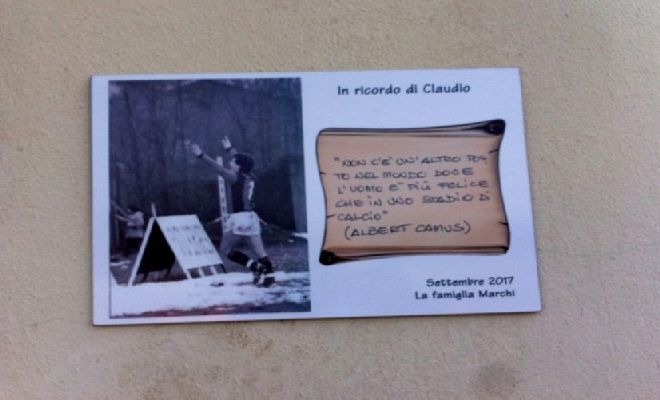 In ricordo di Claudio
"NON C'È UN'ALTRO POS-
TO NEL MONDO DOVE
L'UOMO È PIÙ FELICE
CHE IN UNO STADIO DI
CALCIO"
(ALBERT CAMUS)
Settembre 2017
La famiglia Marchi